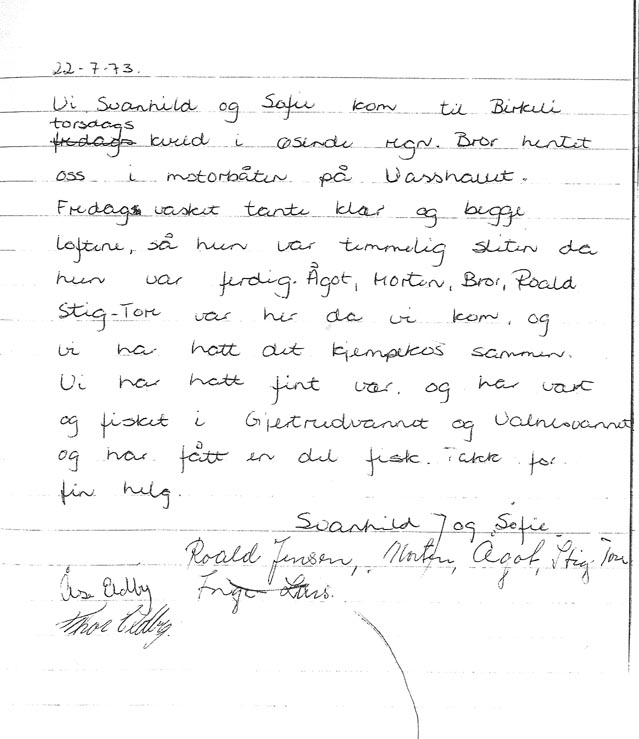 22-7-73.
Vi, Svanhild og Sofie kom til Birkeli
torsdags
fredags kveld i øsende regn. Bror hentet
oss i motorbåten på Vasshauet.
Fredags vasket tante klær og begge
loftene, så hun var temmelig sliten da
hun var ferdig. Ågot, Morten, Bror, Roald
Stig-Tore var her da vi kom, og
vi har hatt det kjempekos sammen.
Vi har hatt fint vær, og har vært
og fisket i Gjertrudvannet og Valnesvannet
og har fått en del fisk. Takk for
fin helg.
Svanhild J og Sofie
Roald Jensen, Morten, Ågot, Stig-Tore
Åse Eldby Inge
Thor Eldby.